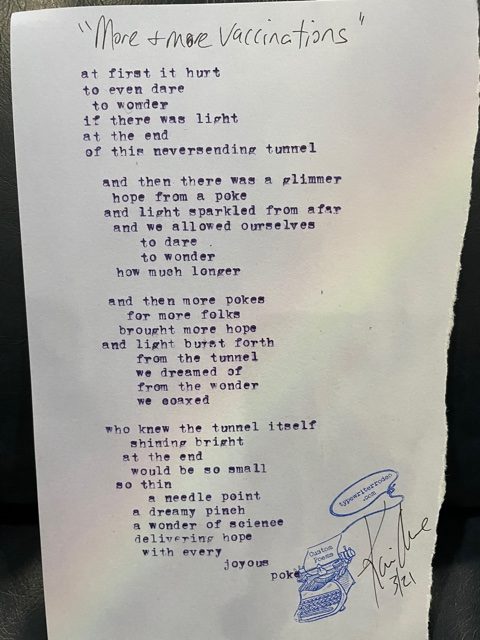 "More + more Vaccinations"
at first it hurt
to even dare
to wonder
if there was light
at the end
of this neversending tunnel
and then there was a glimmer
hope from a poke
and light sparkled from afar
and we allowed ourselves
to dare
to wonder
how much longer
and then more pokes
for more folks
brought more hope
and light burst forth
from the tunnel
we dreamed of
from the wonder
we coaxed
who knew the tunnel itself
shining bright
at the end
would be so small
so thin
a needle point
a dreamy pinch
a wonder of science
delivering hope
with every
joyous
poke
typewriterrodeo
.com
Custom
Poems
3/21